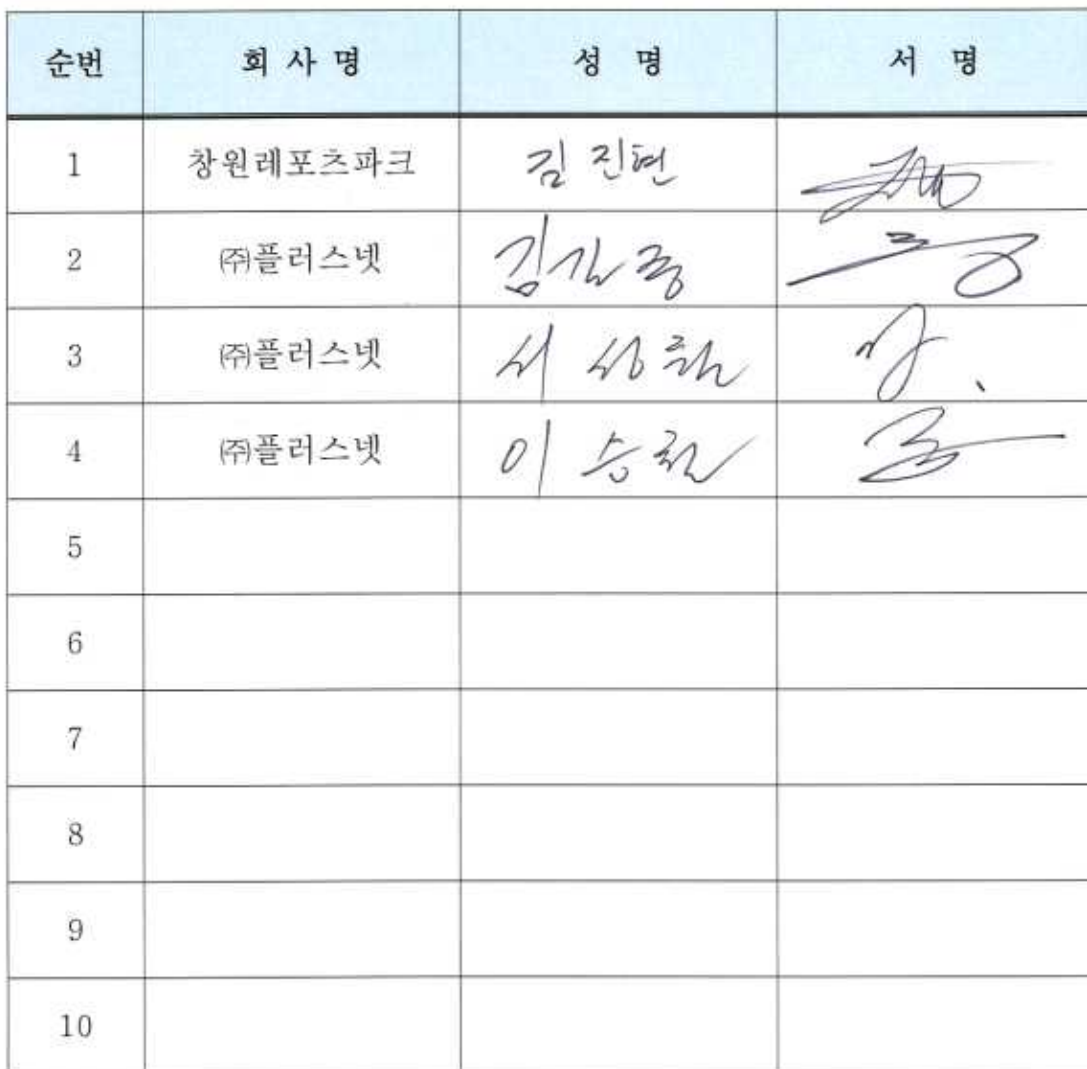 순번 회 사 명 성 명 서 명
1 창원레포츠파크 김진현
2 ㈜플러스넷
3 ㈜플러스넷 서상훈
4 ㈜플러스넷 이승환
5
6
7
8
9
10